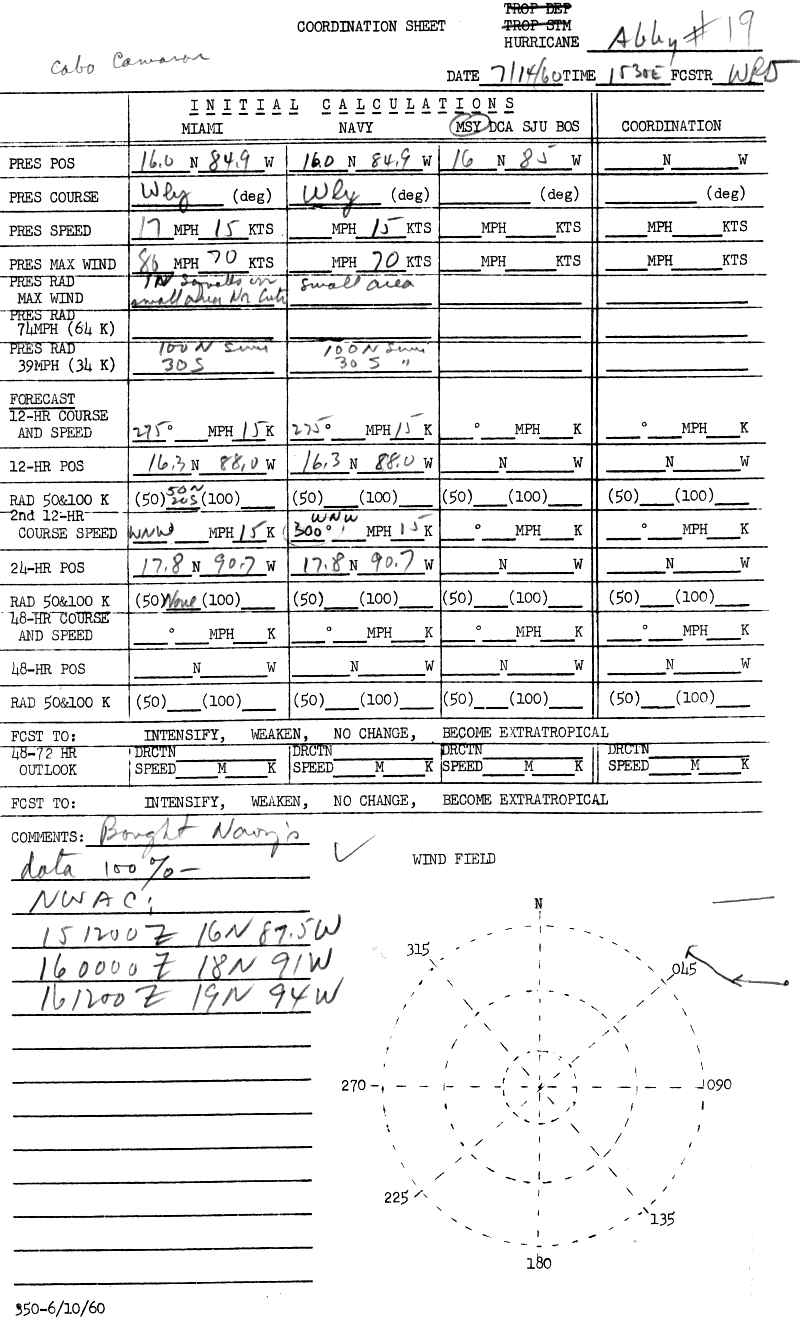 TROP DEP
COORDINATION SHEET TROP STM
HURRICANE Abby #19
Cabo Camaron
DATE 7/14/60 TIME 1530E FCSTR WRD
INITIAL CALCULATIONS
MIAMI NAVY MSY DCA SJU BOS COORDINATION
PRES POS 16.0 N 84.9 W 16.0 N 84.9 W 16 N 85 W N W
PRES COURSE Wly (deg) Wly (deg) (deg) (deg)
PRES SPEED 17 MPH 15 KTS MPH 15 KTS MPH KTS MPH KTS
PRES MAX WIND 80 MPH 70 KTS MPH 70 KTS MPH KTS MPH KTS
PRES RAD IN Squalls in small area
MAX WIND small area Nr Cntr
PRES RAD
74MPH (64 K)
PRES RAD 100 N Semi 100 N Semi
39MPH (34 K) 30 S 30 S "
FORECAST
12-HR COURSE
AND SPEED 275° MPH 15 K 275° MPH 15 K ° MPH K ° MPH K
12-HR POS 16.3 N 88.0 W 16.3 N 88.0 W N W N W
RAD 50&100 K (50) 50N 20S (100) (50) (100) (50) (100) (50) (100)
2nd 12-HR WNW
COURSE SPEED WNW MPH 15 K 300° MPH 15 K ° MPH K ° MPH K
24-HR POS 17.8 N 90.7 W 17.8 N 90.7 W N W N W
RAD 50&100 K (50) None (100) (50) (100) (50) (100) (50) (100)
48-HR COURSE
AND SPEED ° MPH K ° MPH K ° MPH K ° MPH K
48-HR POS N W N W N W N W
RAD 50&100 K (50) (100) (50) (100) (50) (100) (50) (100)
FCST TO: INTENSIFY, WEAKEN, NO CHANGE, BECOME EXTRATROPICAL
48-72 HR DRCTN DRCTN DRCTN DRCTN
OUTLOOK SPEED M K SPEED M K SPEED M K SPEED M K
FCST TO: INTENSIFY, WEAKEN, NO CHANGE, BECOME EXTRATROPICAL
COMMENTS: Bought Navy's
data 100%-
NWAC:
151200Z 16N 87.5W
160000Z 18N 91W
161200Z 19N 94W
WIND FIELD
N
315
045
270
090
225
135
180
350-6/10/60